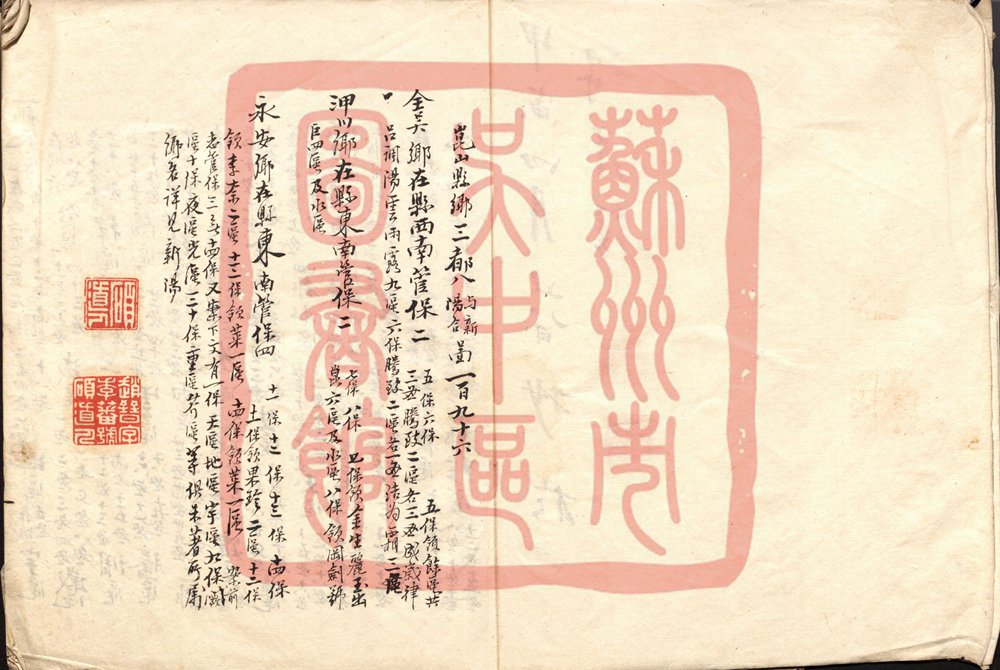 蘇州市
吳中區
圖書館
崑山縣鄉三都八與新陽合圖一百九十六
全吳鄉在縣西南管保二 五保六保 五保領餘區共
三 騰致二區各三 成歲律
呂調陽雲雨露九區六保騰致二區各一 結為霜三區
淠川鄉在縣東南管保二 七保八保 七保領金生麗玉出
崑六區及水區八保領岡劍號
巨四區及水區
永安鄉在縣東南管保四 十一保十二保十三保十四保
十一保領果珍二區十二保
領李柰二區十三保領菜一區 十四保領菜一區 案前
志管保三無十四保又案下文有一保天區地區宇區九保
區十保夜區光區二十保重區芥區等俱未著所屬
鄉名詳見新陽
碩道人
趙詒字
季蕃號
碩道人